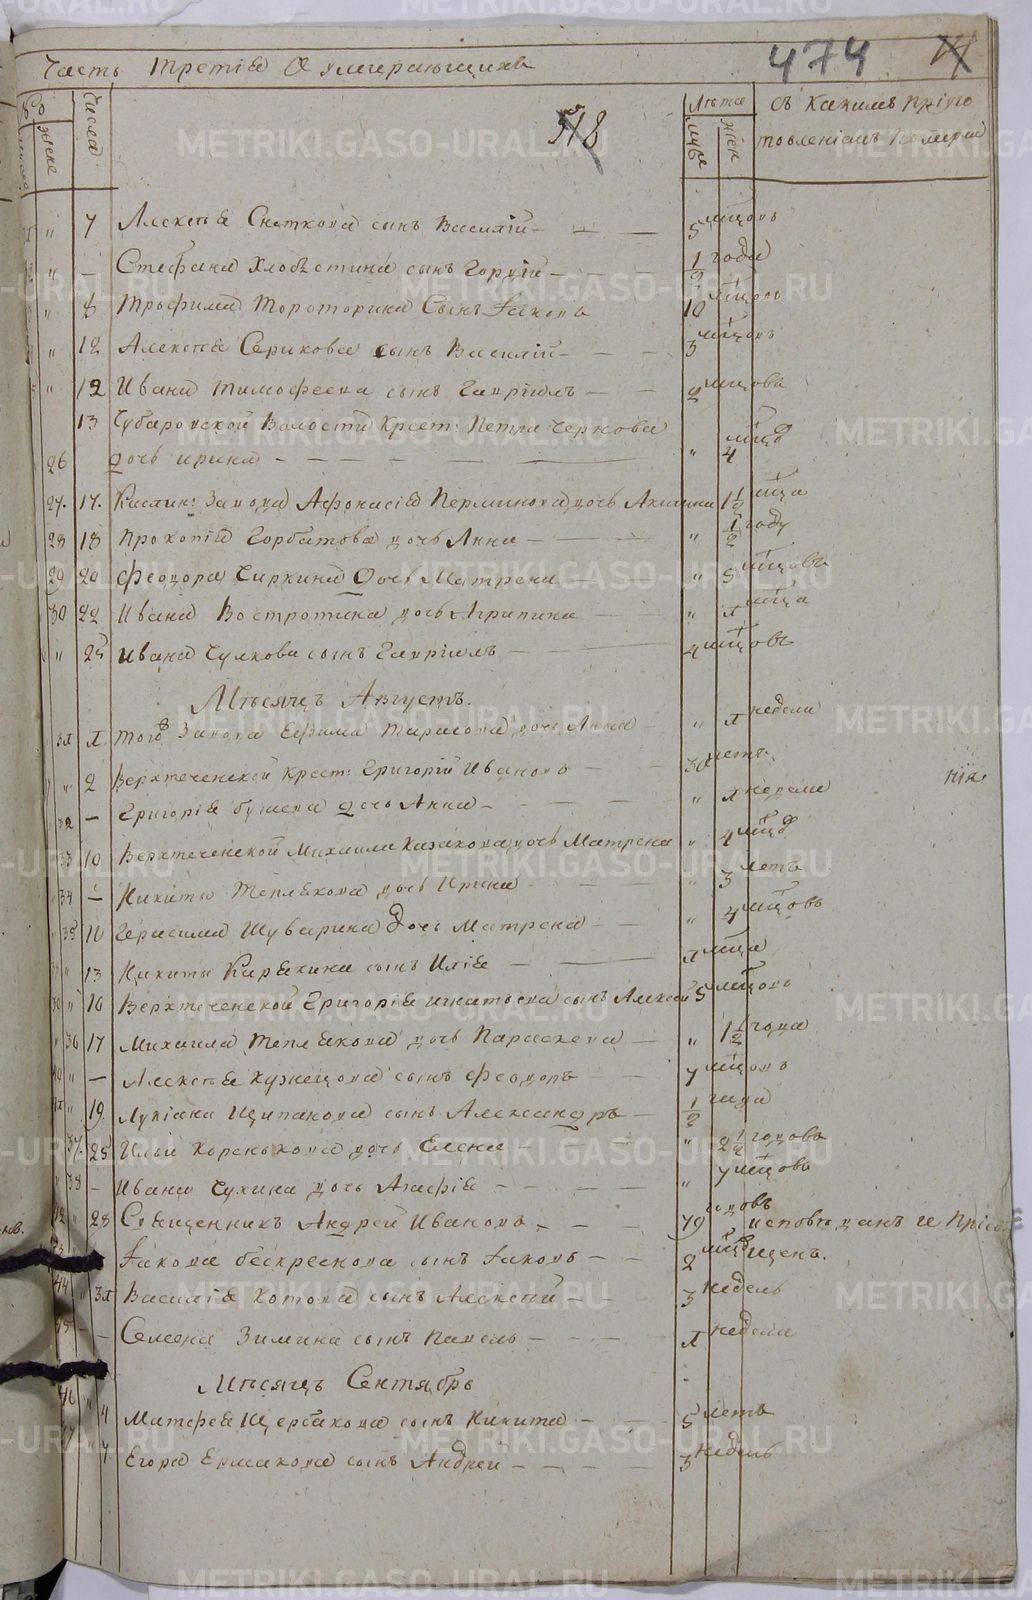 Часть третія О умирающихъ 474
518
№ Числа Лѣта съ какимъ пріуго
женс муже жен товленіемъ померли
" 7 Алексѣя Снѣткова сынъ Василій 5 мцовъ
" — Стефана Хлобѣстина сынъ Гордій 1/2 года
" 8 Трофима Тороторина Сынъ Іаковъ 10 мцовъ
" 12 Алексѣя Серикова сынъ Василій 3 мцовъ
" 12 Ивана Тимофеева сынъ Гавріилъ 2 мцовъ
13 Чубаровской Волости крест: Петра Чернова
26 дочь Ирина " 4 мцд
27. 17. Каслин: Завода Афонасія Перминова дочь Акилина 1 1/2 мца
28 18 Прокопія Горбатова дочь Анна " 1/2 году
29 20 Феодора Чиркина Дочь Матрена " 5 мцовъ
30 22 Ивана Востротина дочь Агрипина " 1 мца
" 25 Ивана Чулкова сынъ Гавріилъ 4 мцовъ
Мѣсяцъ Августъ.
31 1 Того Завода Ефима Тарасова дочь Анна " 1 недели
" 2 Верхтеченской крест: Григорій Ивановъ 30 летъ
32 — Григорія дочь Анна " 1 недели
33 10 Верхтеченской Михаила Казакова дочь Матрена " 4 мцд
34 — Никиты Теплякова дочь Ирина " 3 летъ
35 11 Герасима Шуварина дочь Матрена " 4 мцовъ
" 13 Никиты Карякина сынъ Илія 1 мца
" 16 Верхтеченской Григорія Игнатьева сынъ Алексей 5 мцовъ
36 17 Михаила Теплякова дочь Параскева " 1 1/2 года
" — Алексѣя Кузнецова сынъ Феодоръ 4 мцовъ
" 19 Лукіана Щипанова сынъ Александръ 1/2 года
37. 25 Ильи Коренькова дочь Елена " 2 1/2 годовъ
38 — Ивана Чухина дочь Агафія " 4 мцовъ
" 28 Священникъ Андрей Ивановъ 79 годовъ исповѣданъ и пріоб
Іакова Безкреснова сынъ Іаковъ 2 мцд щенъ.
44 " 31 Василія Котова сынъ Алексѣй 3 недель
45 — Семена Зимина сынъ Павелъ 1 недели
Мѣсяцъ Сентябрь
46 " 4 Матфея Щербакова сынъ Никита 5 летъ
7 Егора Ермакова сынъ Андрей 3 недель
METRIKI.GASO-URAL.RU